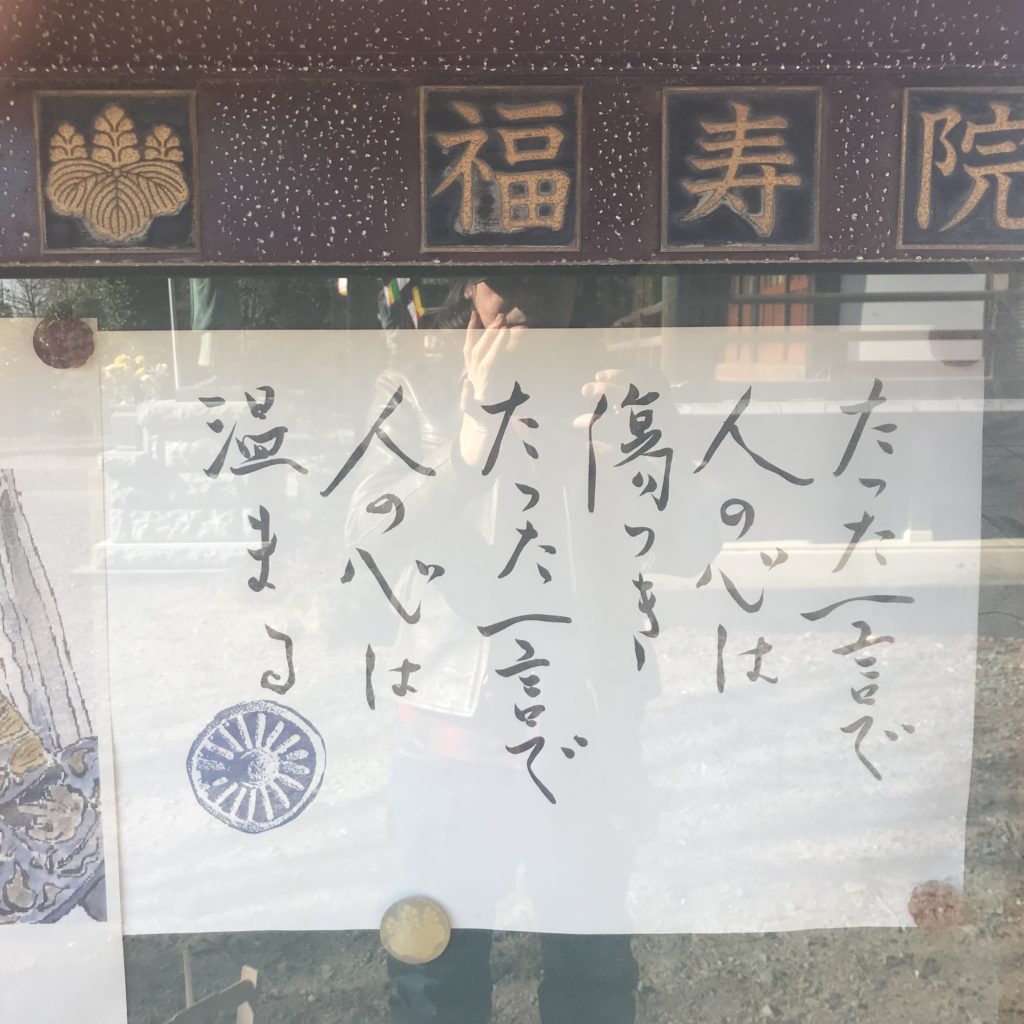 福寿院
たった一言で
人の心は
傷つき
たった一言で
人の心は
温まる